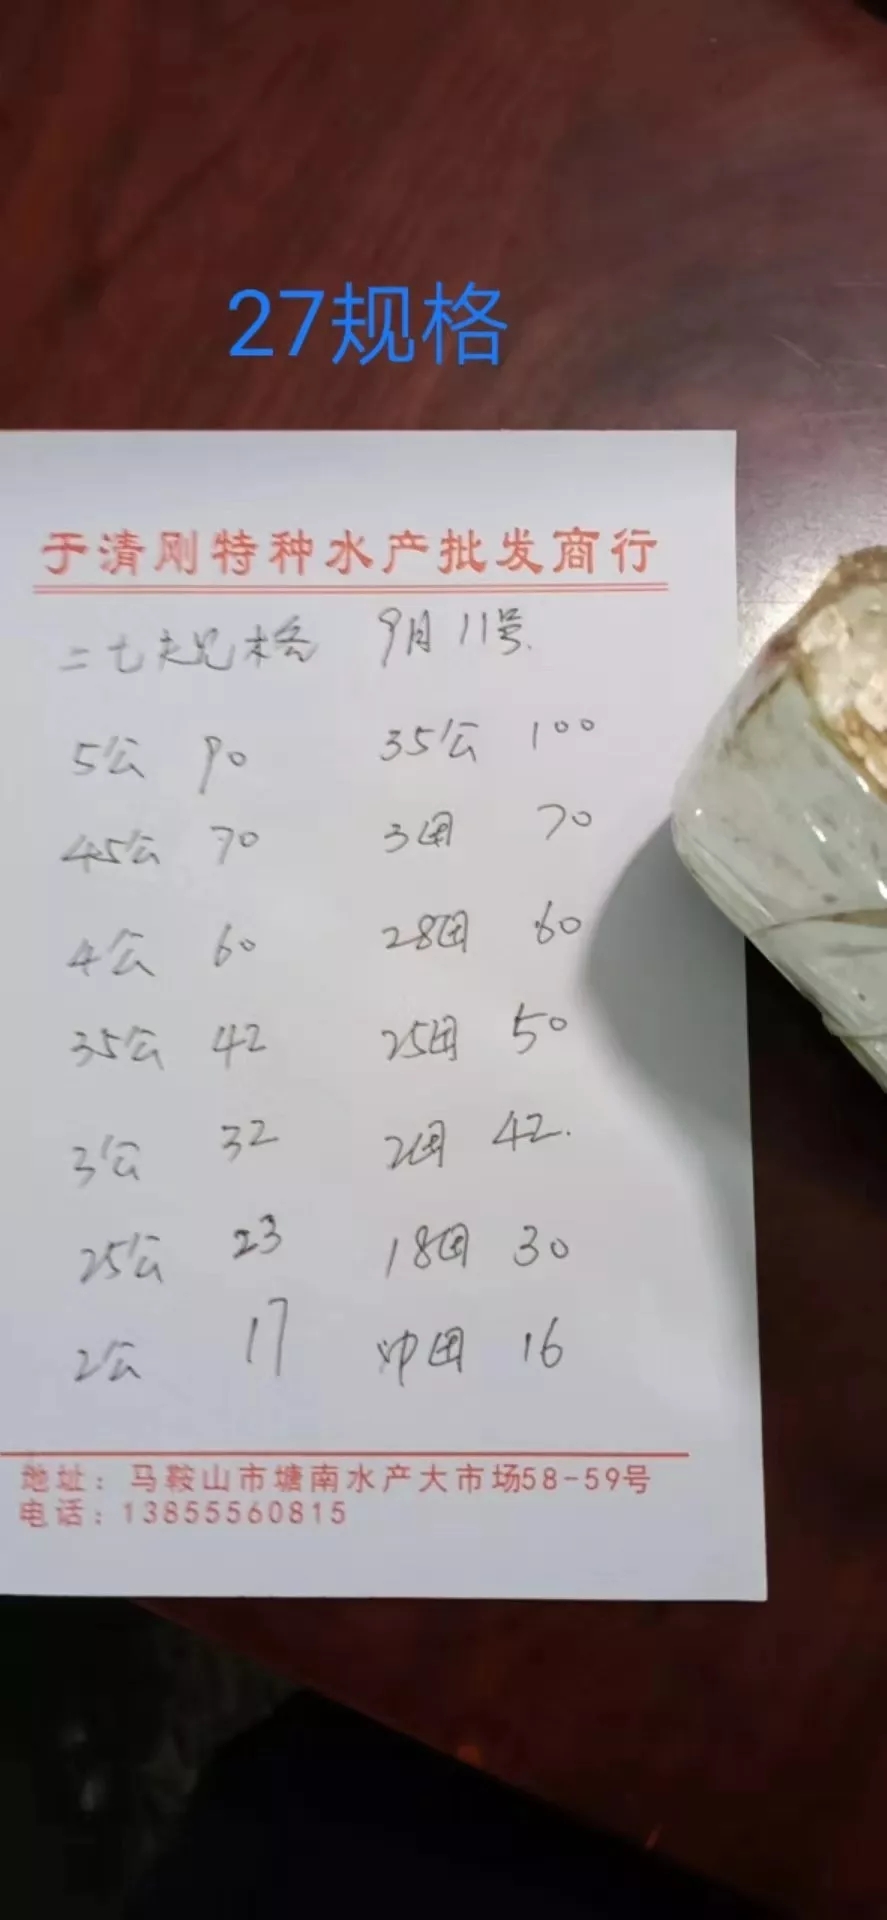 27规格
于清刚特种水产批发商行
二七规格 9月11号.
5公 90 35公 100
45公 70 3团 70
4公 60 28团 60
35公 42 25团 50
3公 32 2团 42.
25公 23 18团 30
2公 17 中团 16
地址：马鞍山市塘南水产大市场58-59号
电话：13855560815